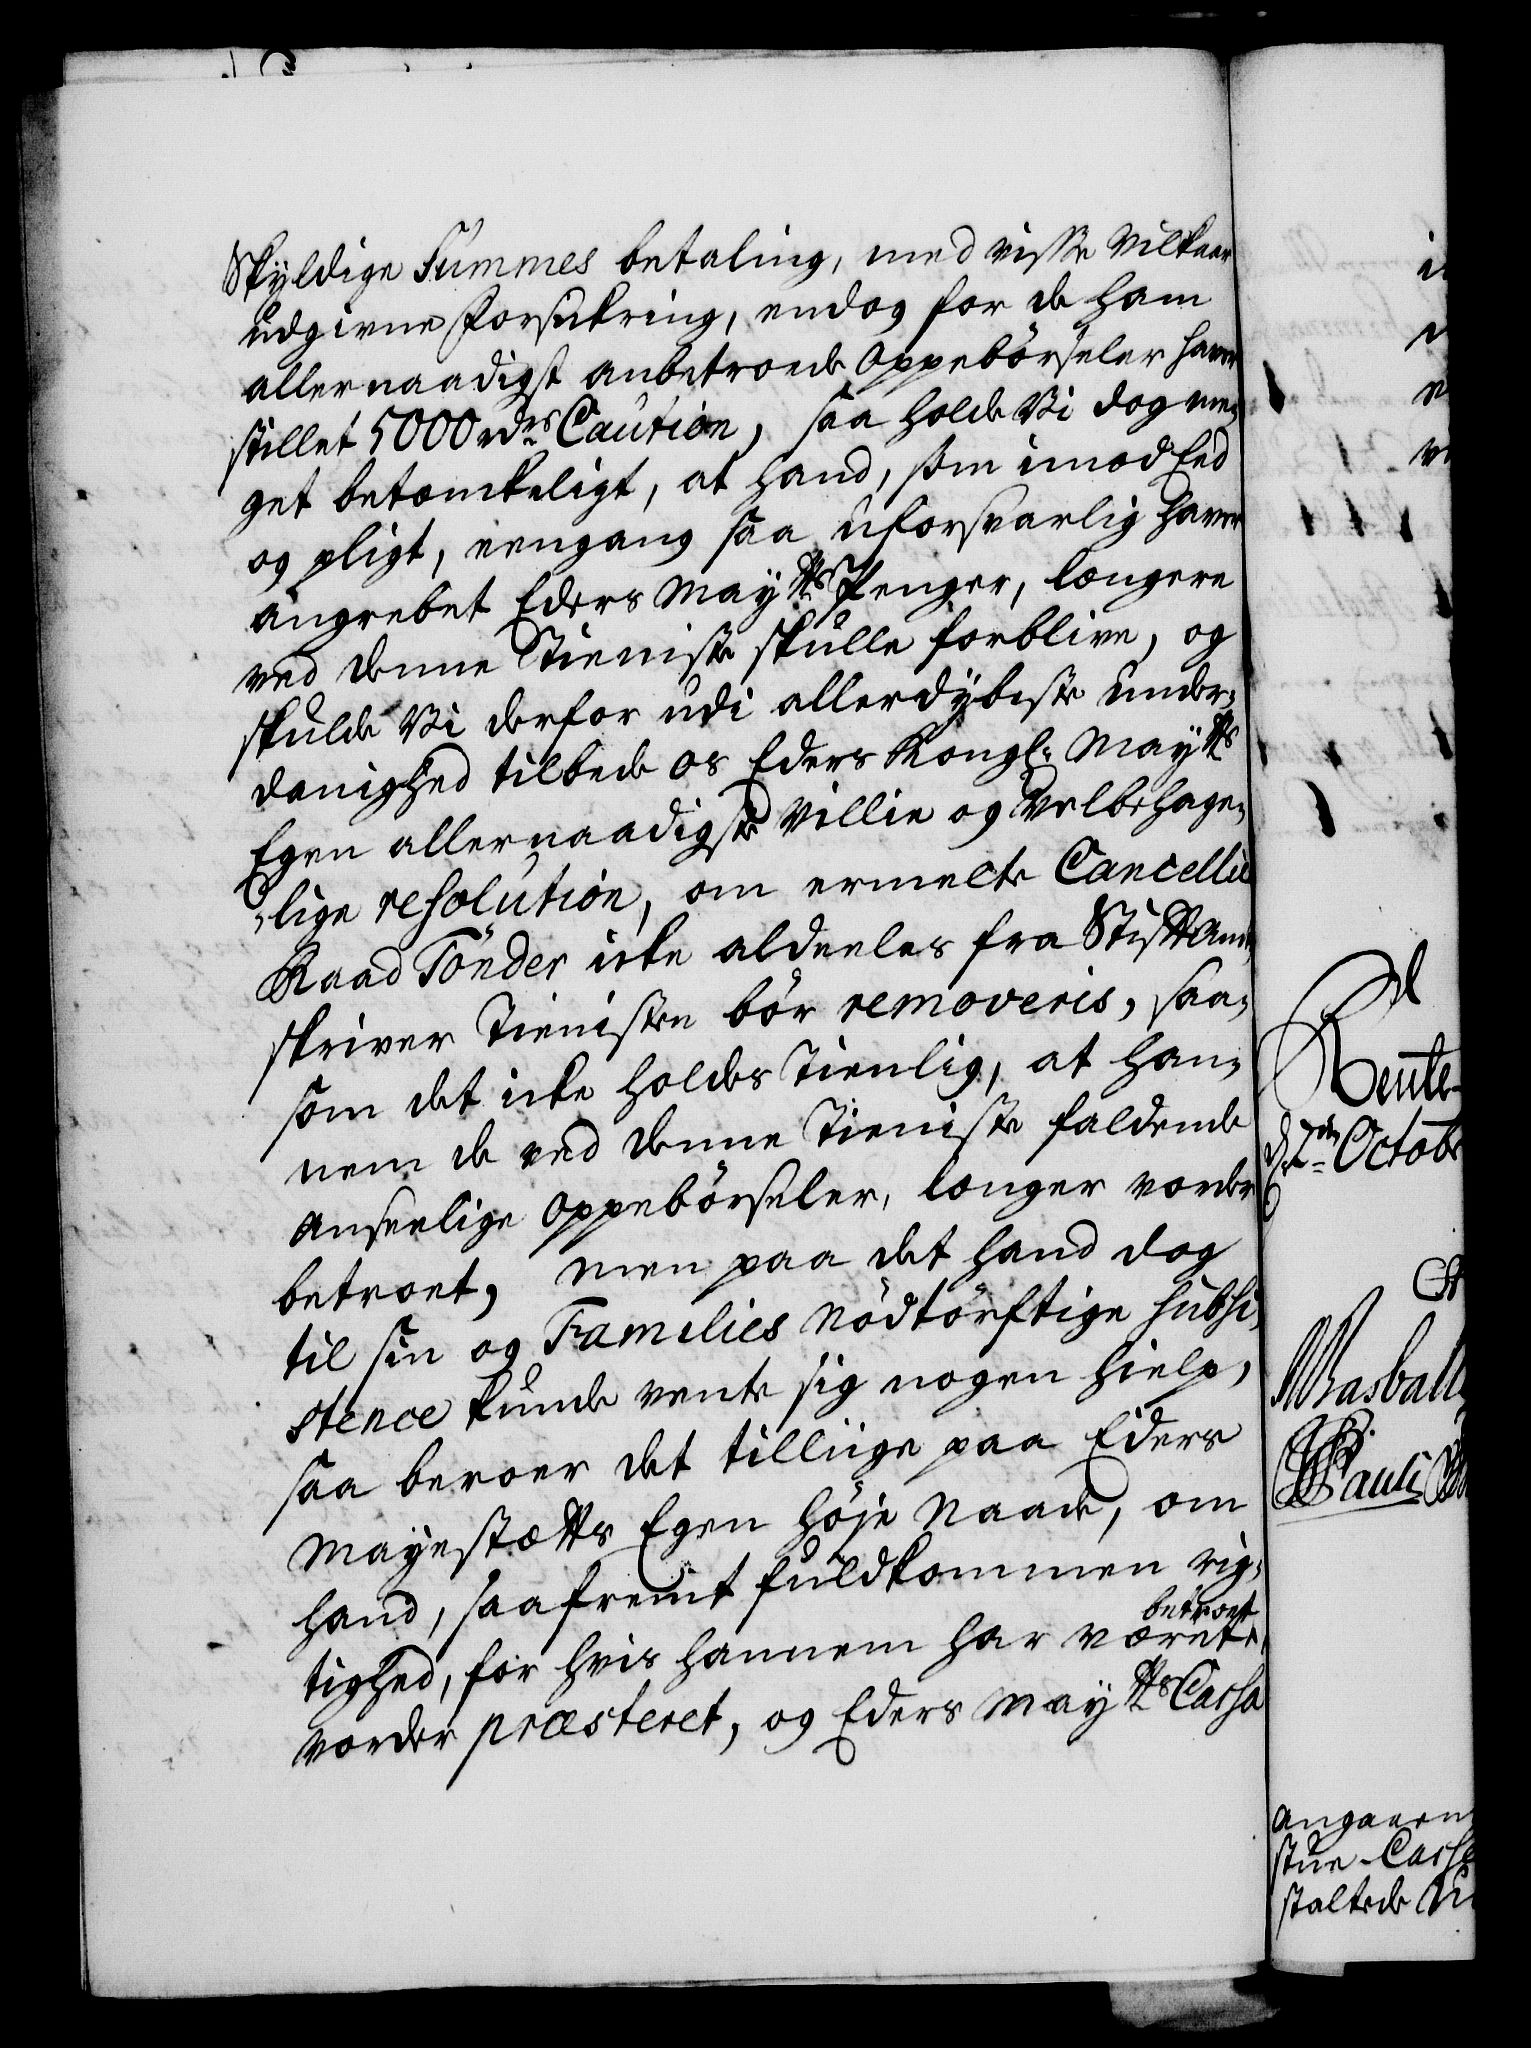 Skyldige Summes betaling, med visse vilkaar
udgivne Forsikring, endog for de ham
allernaadigst anbetroede Oppebörseler haver
stillet 5000 rdrs Caution, saa holde Vi dog me„
get betænkeligt, at hand, som imod Eed
og pligt, eengang saa uforsvarlig haver
angrebet Eders Maytts Penger, længere
ved denne Tieniste skulle forblive, og
skulde Vi derfor udi allerdybeste under„
danighed tilbede os Eders Kongl. Maytts
Egen allernaadigste Villie og Velbehage„
„lige resolution, om ermelte Cancellie
Raad Tönder icke aldeeles fra Stiftamt„
skriver Tienisten bör removeris, saa„
som det icke holdes Tienlig, at han„
nem de ved denne Tieniste faldende
anseelige Oppebörseler, længer vorder
betroet, men paa det hand dog
til sin og Families Nödtörftige subsi„
stence kunde vente sig nogen hielp,
saa beroer det tilliige paa Eders
Mayestætts Egen höje Naade, om
hand, saafremt fuldkommen rig„
betroet
tighed, for hvis hannem har været
vorder præsteret, og Eders Maytts Cassa
Rente-
d. 7de Octob
Pauli
angaaen
stue-Cass
staltede